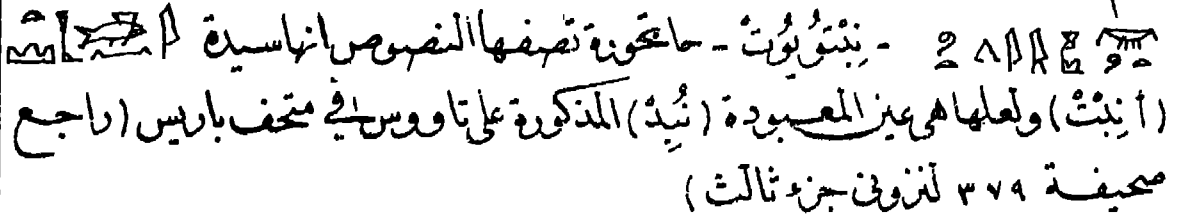 - نِبْتوُيوُتْ - حاتحورة تصفها النصوص انها سيدة
(أنِبْتْ) ولعلها هى عين المعبودة (نُبِدْ) المذكورة على تاووس في متحف باريس (راجع
صحيفة ٣٧٩ لنزونى جزء ثالث)